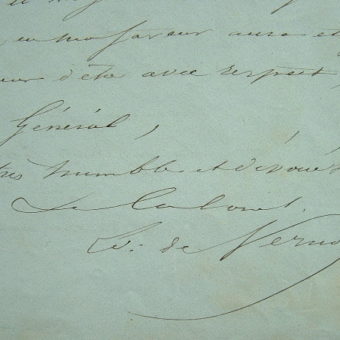 en ma faveur aura et
d'être avec respect,
Général,
très humble et dévoué
Le Colonel
de Verno